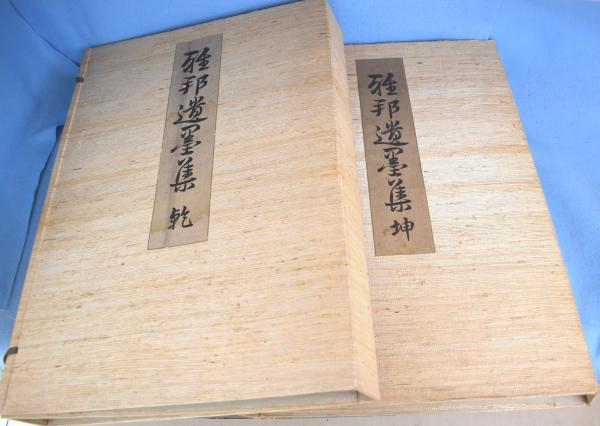 雅邦遺墨集 乾
雅邦遺墨集 坤